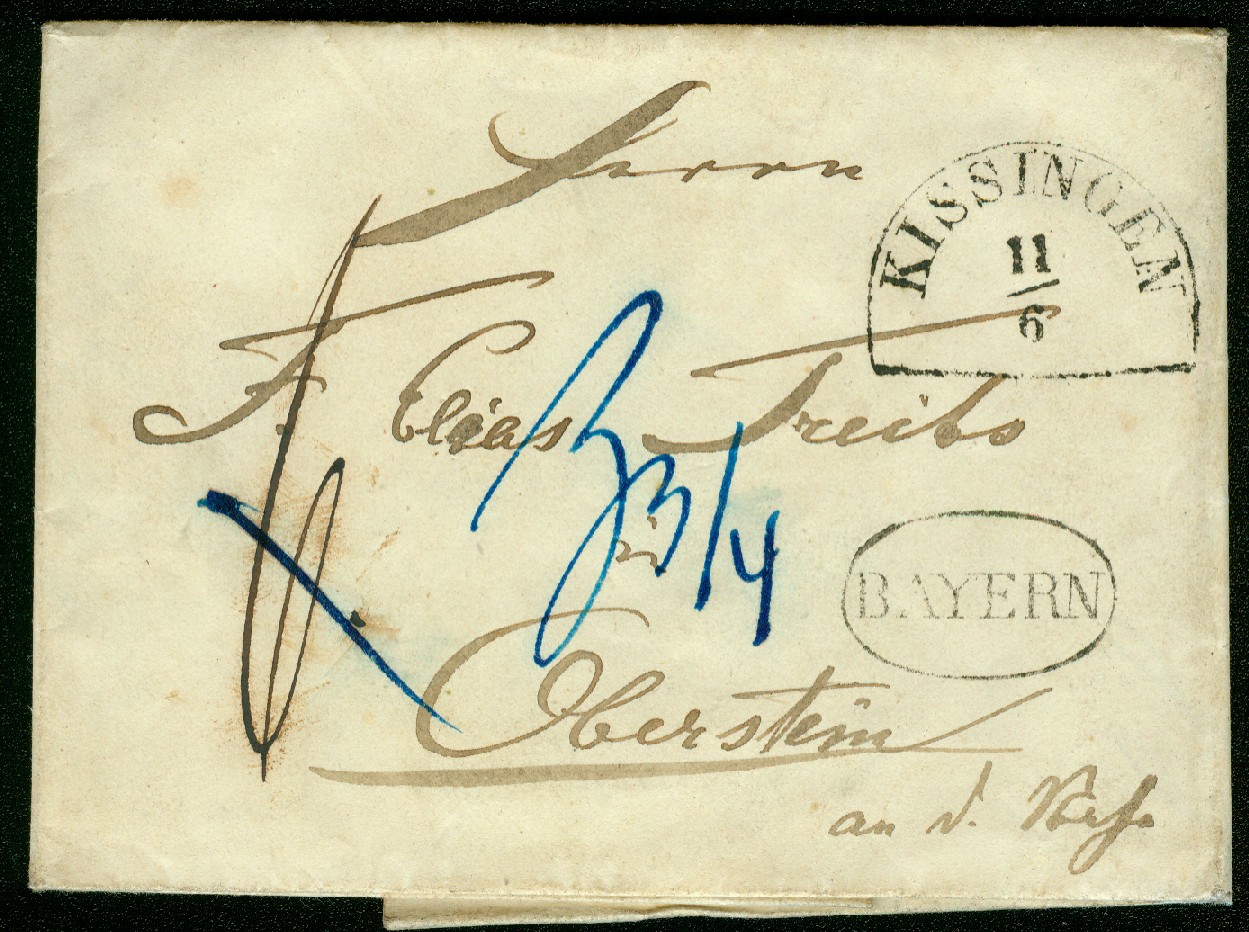 Herrn
KISSINGEN
11
6
F. Elias Treibs
in
3 3/4
BAYERN
Oberstein
an d. Nahe